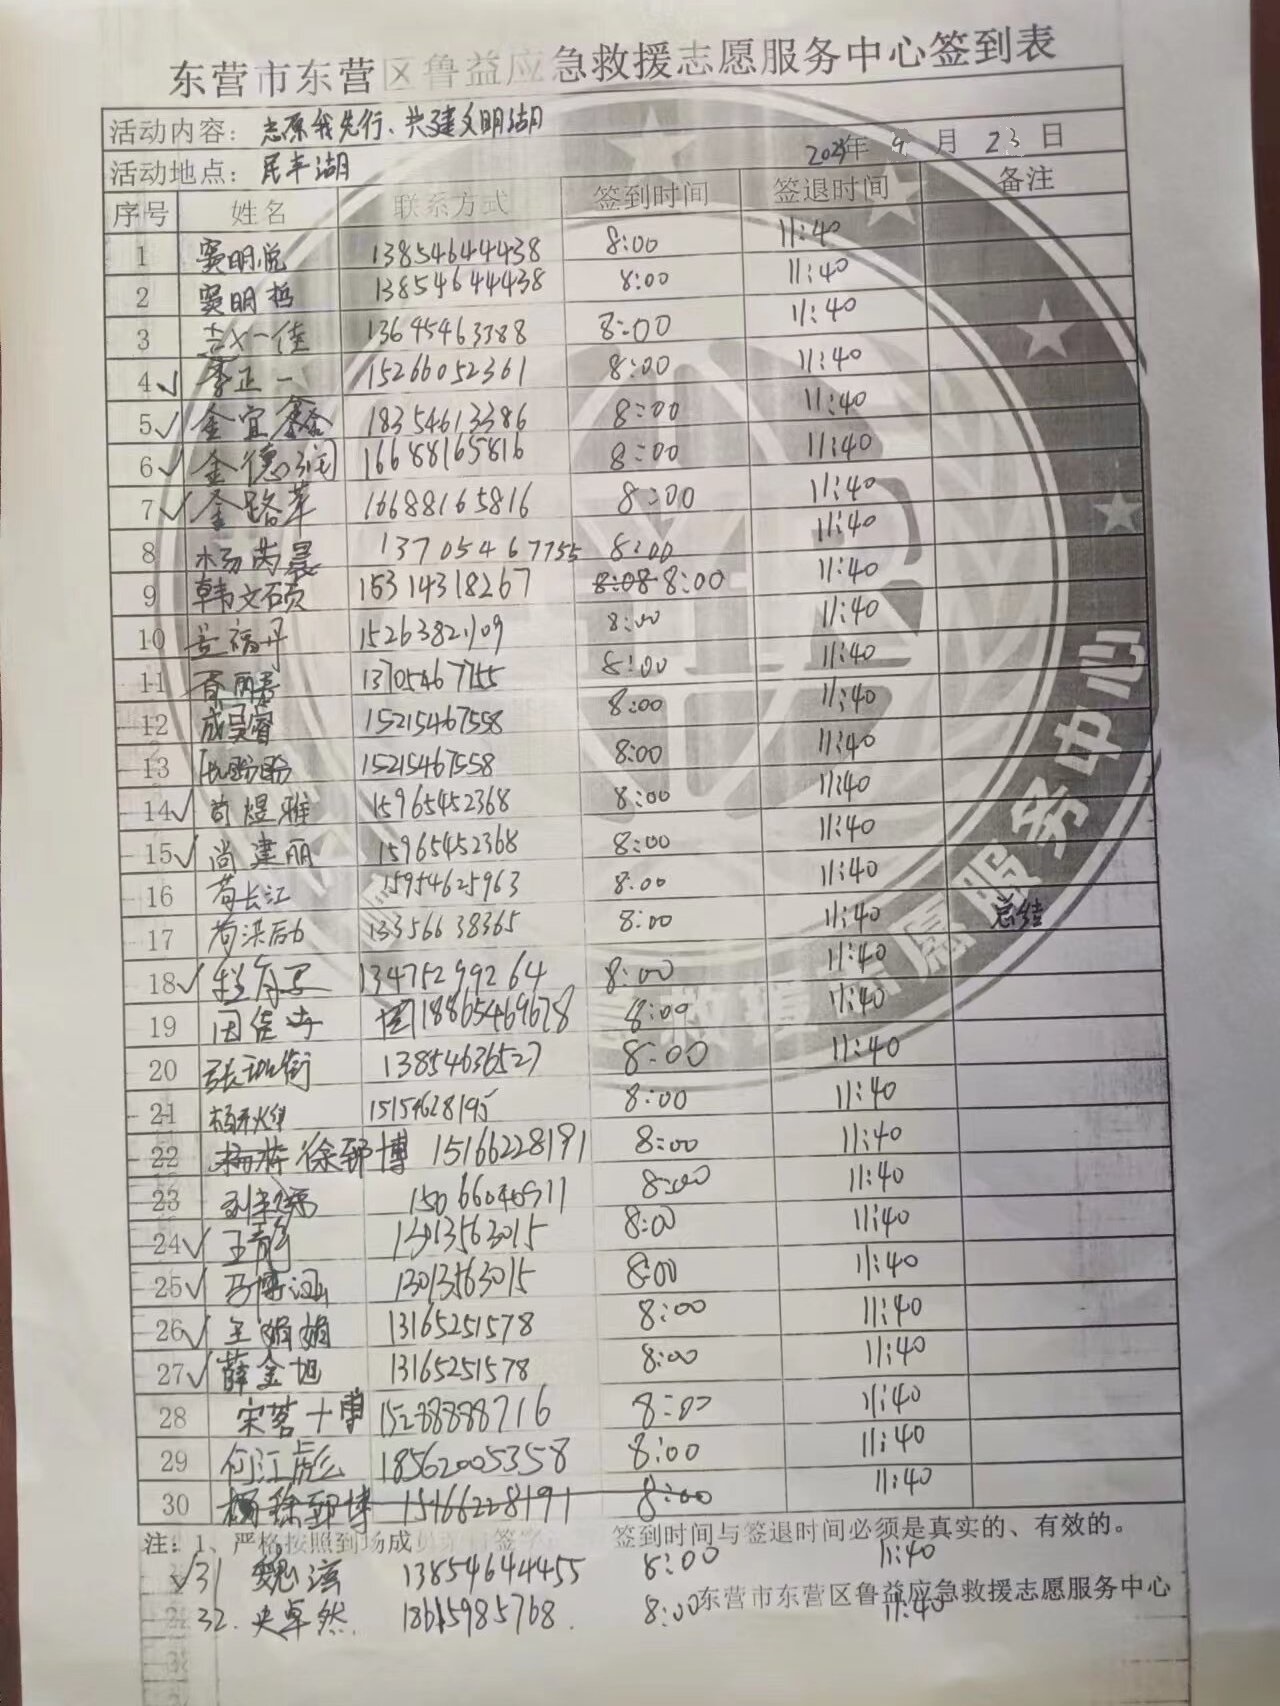 东营市东营区鲁益应急救援志愿服务中心签到表
活动内容：志愿我先行、共建文明湖
活动地点：民丰湖 年 9 月 23 日
序号 姓名 联系方式 签到时间 签退时间 备注
1 窦明悦 13854644438 8:00 11:40
2 窦明哲 13854644438 8:00 11:40
3 8:00 11:40
4 ✓ 李正一 15266052361 8:00 11:40
5 ✓ 金宜鑫 18354613386 8:00 11:40
6 ✓ 金德润 16688165816 8:00 11:40
7 ✓ 金路苹 16688165816 8:00 11:40
8 杨芮晨 13705467755 8:00 11:40
9 韩文硕 15314318267 8:08 8:00 11:40
10 8:00 11:40
11 13705467755 8:00 11:40
12 成昊睿 15215467558 8:00 11:40
13 15215467558 8:00 11:40
14 ✓ 苟煜雅 15965452368 8:00 11:40
15 ✓ 尚建丽 15965452368 8:00 11:40
16 苟长江 15954625963 8:00 11:40
17 13356638365 8:00 11:40 总结
18 ✓ 13475299264 8:00 11:40
19 18865469678 8:00 11:40
20 13854636527 8:00 11:40
21 8:00 11:40
22 徐郅博 15166228191 8:00 11:40
23 8:00 11:40
24 ✓ 王静 8:00 11:40
25 ✓ 马博涵 13013563015 8:00 11:40
26 ✓ 王娟娟 13165251578 8:00 11:40
27 ✓ 薛金旭 13165251578 8:00 11:40
28 8:00 11:40
29 何江彪 18562005358 8:00 11:40
30 徐郅博 15166228191 8:00 11:40
注：1、严格按照到场成 签到时间与签退时间必须是真实的、有效的。
✓ 31 魏滋 13854644455 8:00 11:40
东营市东营区鲁益应急救援志愿服务中心
32. 卓然 18615985768 8:00 11:40
服务中心